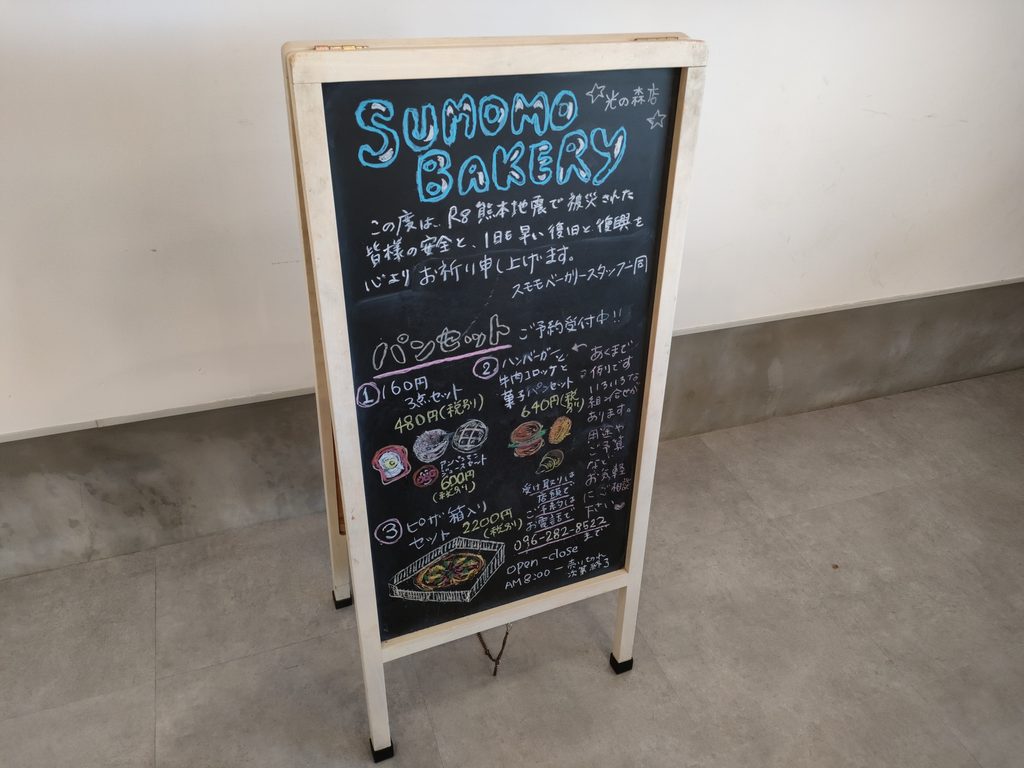 SUMOMO
BAKERY
☆光の森店☆
この度は、R8熊本地震で被災された
皆様の安全と、1日も早い復旧と復興を
心より お祈り申し上げます。
スモモベーカリースタッフ一同
パンセット ご予約受付中!!
① 160円
3点セット
480円(税別)
600円
(税別)
② ハンバーガーと
牛肉コロッケと
菓子パンセット
640円(税別)
← あくまで
例です
いろいろな
組み合せが
あります。
用途や
ご予算
など
お気軽
にご相談
下さい
③ ピザ箱入り
セット 2200円
(税別)
受け取りは
店頭で
ご予約は
お電話で
096-282-8527
まで
open-close
AM8:00 -